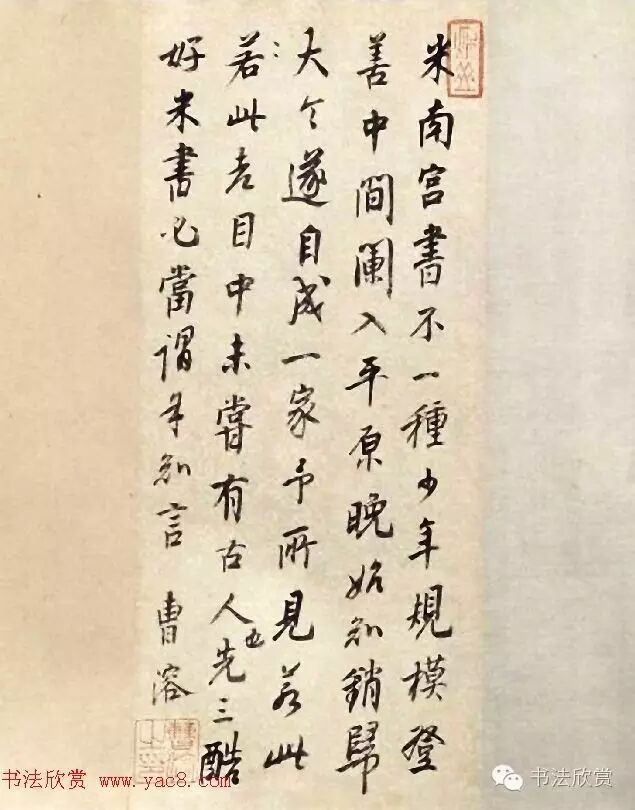 米南宮書不一種少年規模登
善中間闌入平原晚始知銷歸
大令遂自成一家予所見若此
若此老目中未嘗有古人也先三酷
好米書必當謂予知言 曹溶
书法欣赏 www.yac8.com
书法欣赏